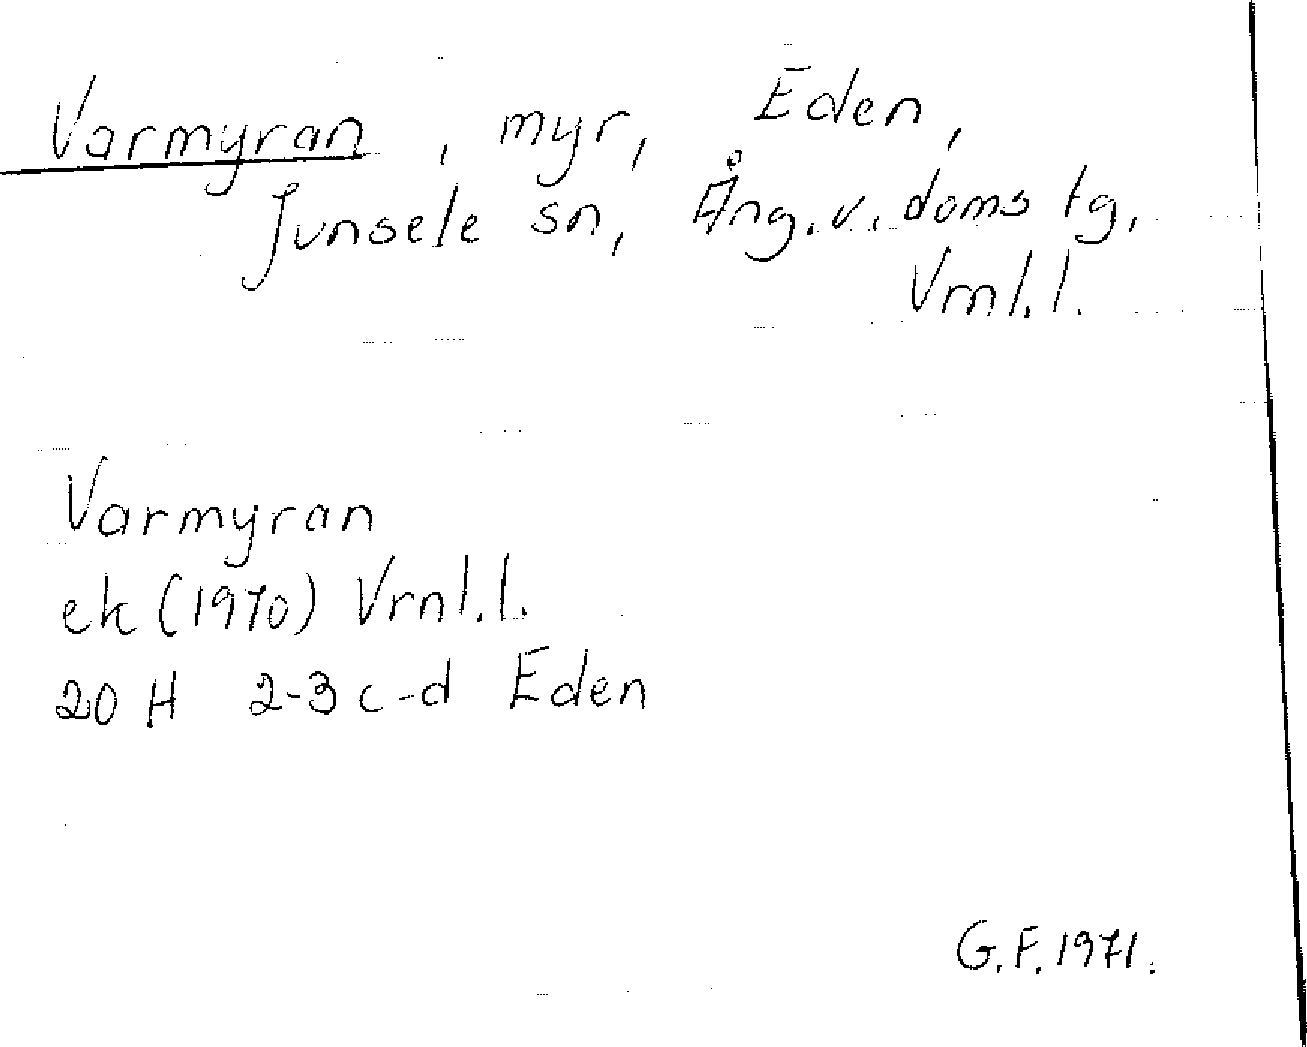 Varmyran, myr, Eden,
Junsele sn, Ång. v. doms tg,
Vrnl. l.
Varmyran
ek (1970) Vrnl. l.
20 H 2-3 c-d Eden
G. F. 1971.